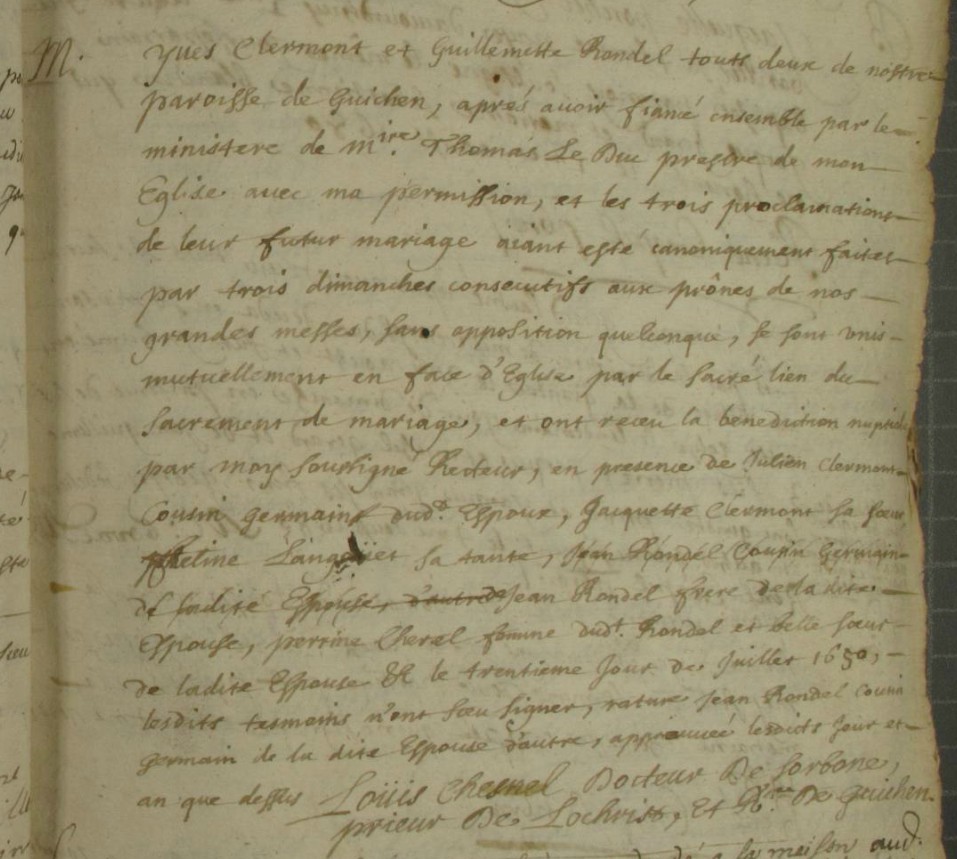 M. Yves Clermont et Guillemette Rondel touts deux de nostre
paroisse de Guichen, aprés avoir fiancé ensemble par le
ministere de Mire. Thomas Le Duc prestre de mon
Eglise avec ma permission, et les trois proclamations
de leur futur mariage aiant esté canoniquement faites
par trois dimanches consecutifs aux prônes de nos
grandes messes, sans opposition quelconque, se sont unis
mutuellement en face d'Eglise par le sacré lien du
sacrement de mariage, et ont receu la benediction nuptiale
par moy soussigné Recteur, en presence de Julien Clermont
Cousin germains dudt. Espoux, Jacquette Clermont sa sœur
sa tante, Jean Rondel Cousin Germain
de ladite Espouse, d'autre Jean Rondel frere de la dite
Espouse, perrine Chevel femme dudt. Rondel et belle sœur
de ladite Espouse & le trentieme Jour de Juillet 1650,
lesdits tesmoins n'ont sceu signer, rature Jean Rondel cousin
germain de la dite Espouse d'autre, approuvée lesdicts Jour et
an que dessus Loüis Chesnel Docteur De Sorbone,
prieur De Lochrist, Et Rr. De Guichen.